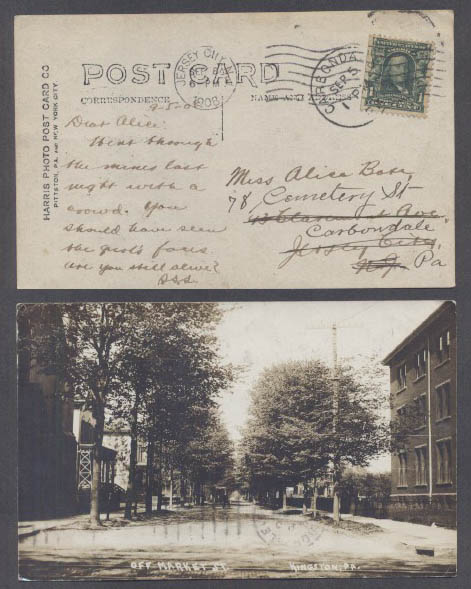 POST CARD
CORRESPONDENCE
NAME AND ADDRESS
HARRIS PHOTO POST CARD CO
PITTSTON, PA. AND NEW YORK CITY.
JERSEY CITY
1908
CARBONDALE
SEP 5
9-5-0
Dear Alice:
Went through
the mines last
night with a
crowd. You
should have seen
the girl's faces.
Are you still alive?
Miss Alice
78 Cemetery St
Ave
Carbondale
Jersey City,
N.J. Pa
OFF MARKET ST.
KINGSTON, PA.